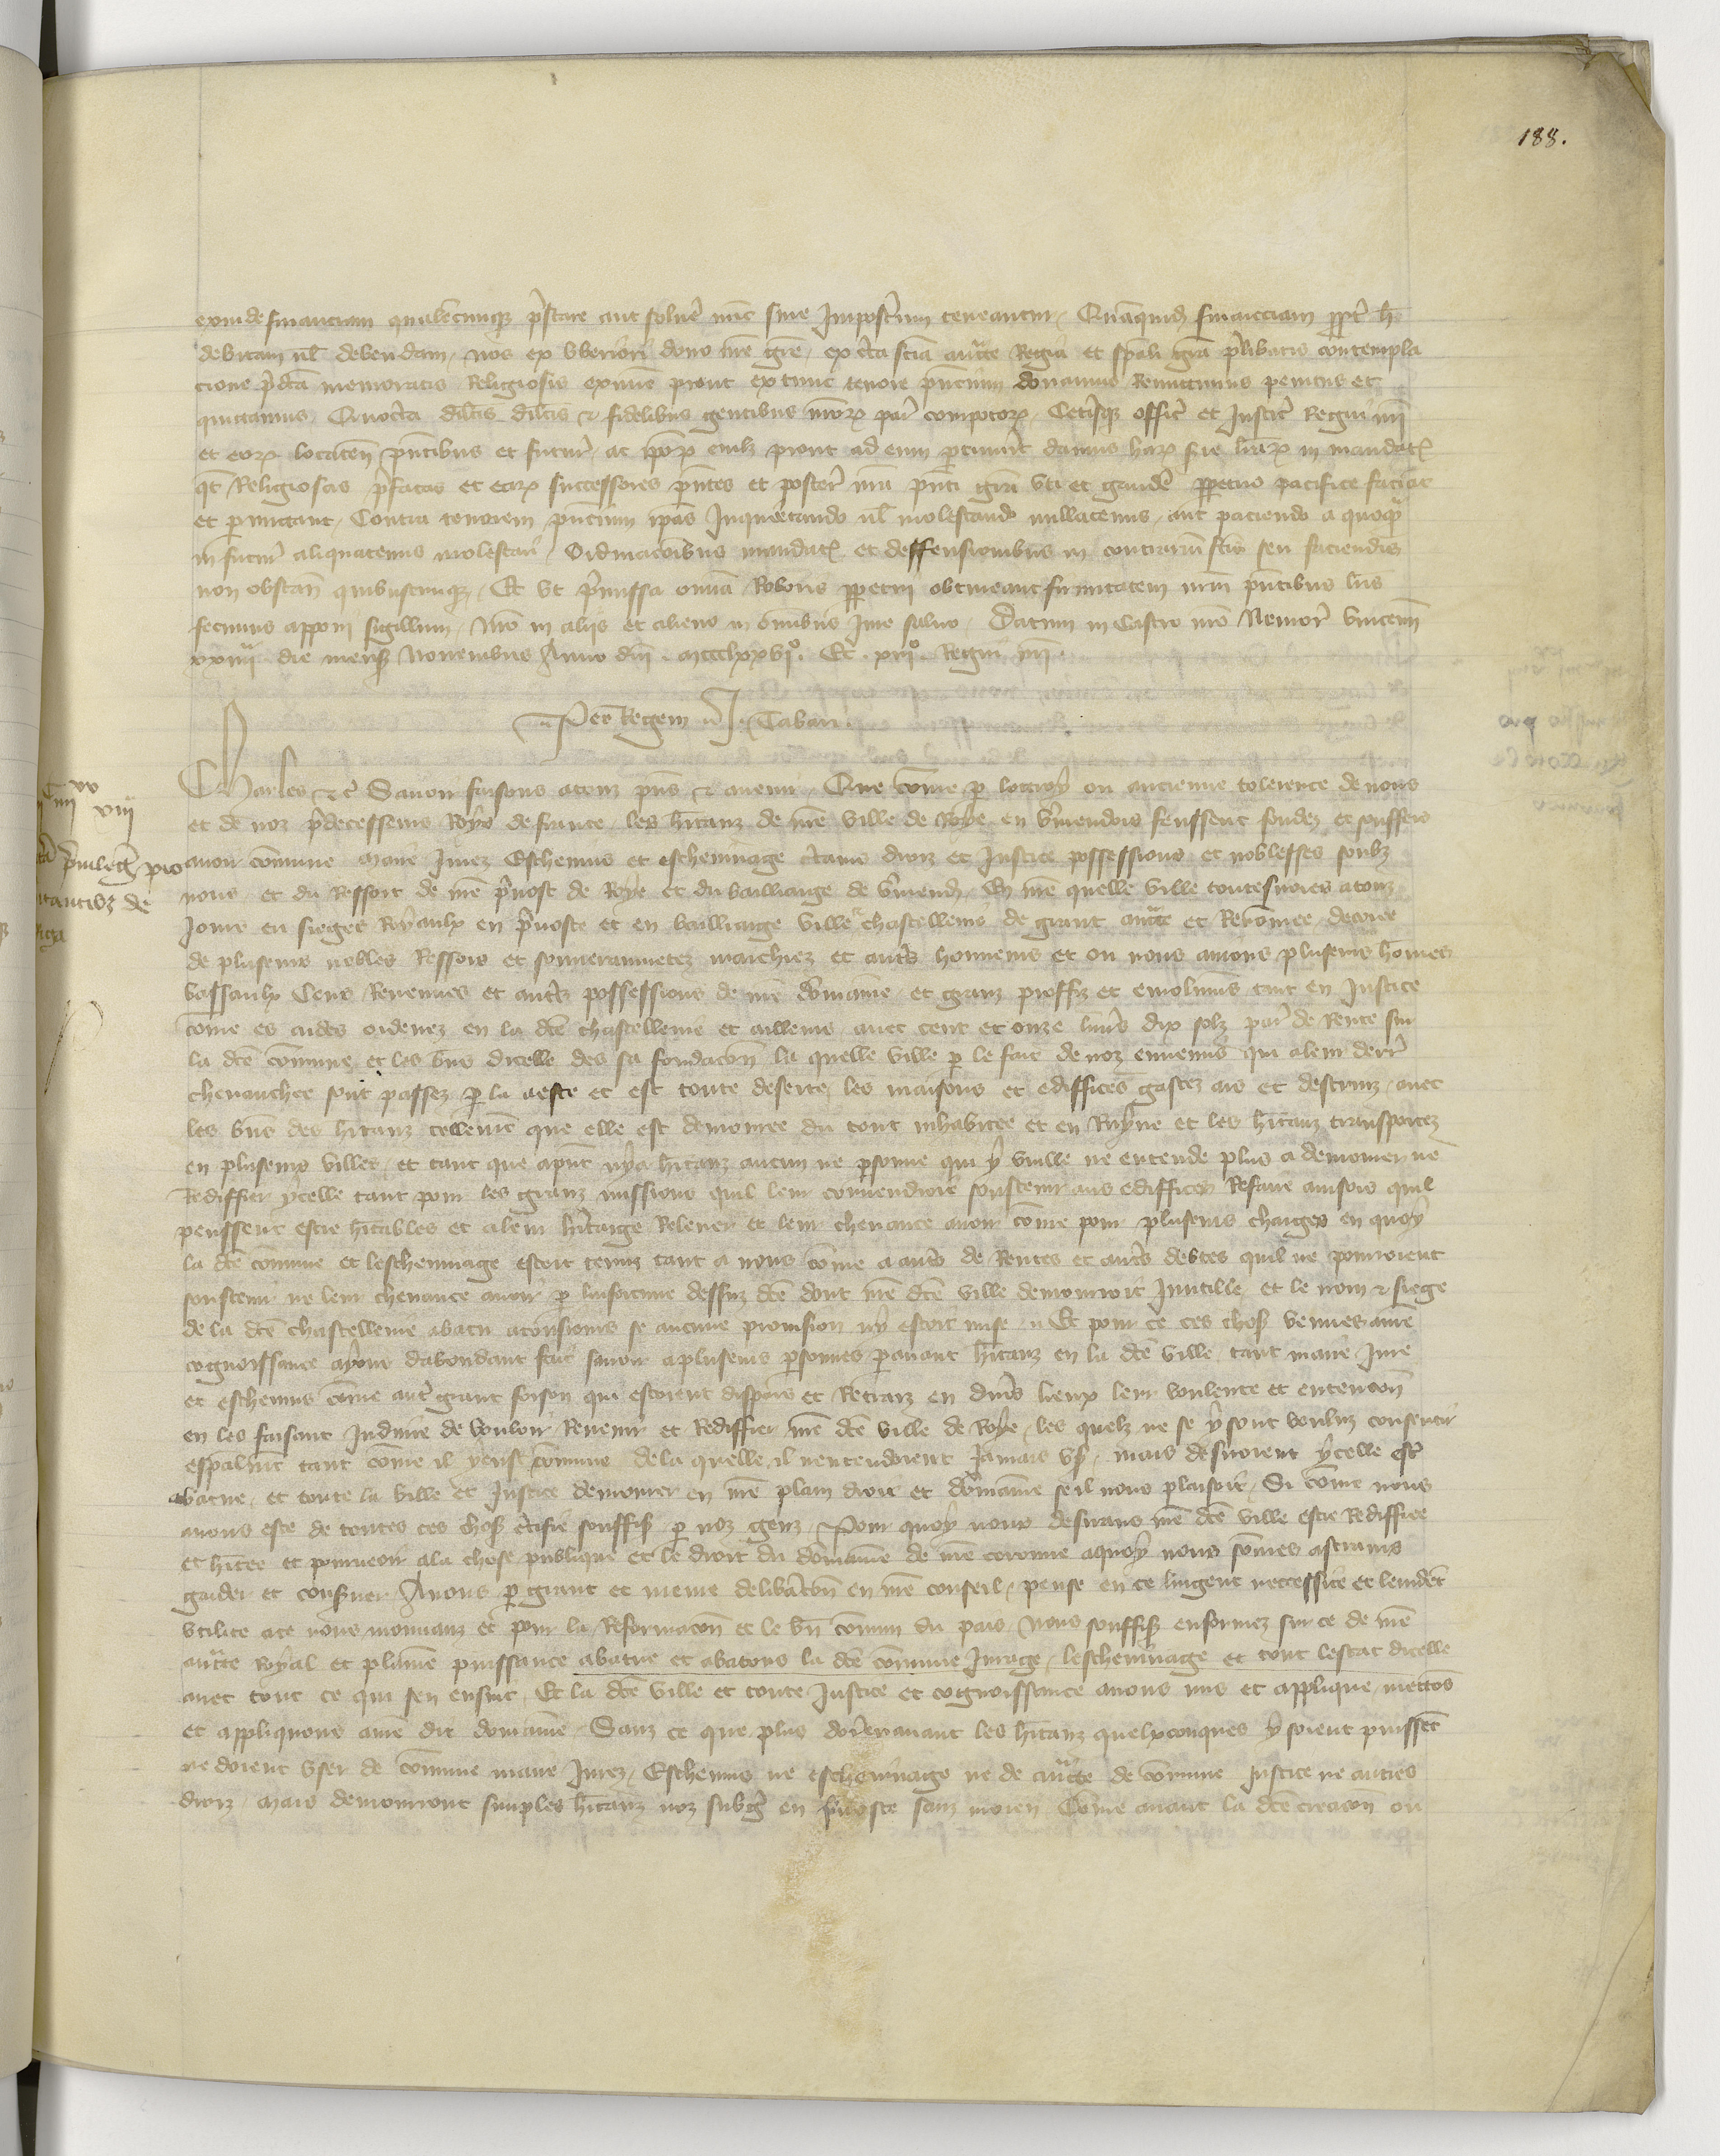 188.
exinde financiam qualemcunque prestare aut solvere nunc sive Imposterum teneantur. Quamquid financiam propter hoc
debitam vel debendam, nos ex uberiori dono nostre gratie, ex certa scientia auctoritate Regia et speciali gratia prelibatis contempla
cione predicta memoratis Religiosis exnunc prout extunc tenore presencium donamus Remittimus penitus et
quittamus. Quocirca dilectis dilectis et fidelibus gentibus nostrorum par. compotorum, Ceterisque offic. et Justic. Regni nostri
et eorum locaten. presentibus et futuris ac ipsorum cuilibet prout ad eum pertinuerit damus harum serie litterarum in mandatis
quatenus Religiosas prefatas et earum successores presentes et posteras nostra presenti gratia uti et gaudere perpetuo pacifice faciant
et permittant, Contra tenorem presencium ipsas Inquietando vel molestando nullatenus, aut paciendo a quoquam
in futurum aliquatenus molestari, Ordinacionibus mandatis et deffensionibus in contrarium factis seu faciendis
non obstan. quibuscunque, Et ut premissa omnia Roboris perpetui obtineant firmitatem nostrum presentibus litteris
fecimus apponi sigillum, Nostro in aliis et alieno in omnibus Jure salvo. Datum in Castro nostro Nemoris Vincenn.
xxiiii die mensis Novembris Anno domini mccclxxvi°. Et xiii° Regni nostri.
Per Regem J. Tabari.
viii
privileg. pro
habitantibus de
Charles etc. Savoir faisons a touz presens et avenir, Que comme par lottroy ou ancienne tolerence de nous
et de noz predecesseurs Roys de france, les habitanz de nostre ville de Roye en Vermendois feussent fondez et souffers
avoir commune Maire Jurez Eschevins et eschevinage certains droiz et Justice possessions et noblesses soubz
nous, et du Ressort de nostre prevost de Roye et du bailliaige de Vermend. En nostre quelle ville toutesvoies a touz
Jours eu sieges Royaulx en prevoste et en bailliaige ville chastellenie de grant auctorite et Renommee decoree
de plusieurs nobles Ressors et souverainnetez marchiez et autres honneurs et ou nous avions plusieurs hommes
vassaulx Cens Revenues et autres possessions de nostre domaine, et granz proffiz et emolumens tant en Justice
comme es aides ordenez en la dicte chastellenie et ailleurs, avec cent et onze livres dix solz par. de Rente sur
la dicte commune et les biens dicelle des sa fondacion la quelle ville par le fait de noz ennemis qui a leur derr.
chevauchee sont passez par la a este et est toute deserte, les maisons et ediffices gastez ars et destruiz, avec
les biens des habitanz tellement que elle est demouree du tout inhabitee et en Ruyne et les habitanz transportez
en plusieurs villes, et tant que a present nya habitanz aucun ne personne qui y vueille ne entende plus a demourer ne
Rediffier ycelle tant pour les granz missions quil leur convendroit soustenir aus ediffices Refaire ainsois quil
peussent estre habitables et a leur heritaige Relever et leur chevance avoir comme pour plusieurs charges en quoy
la dicte commune et leschevinage estoit tenuz tant a nous comme a autres de Rentes et autres debtes quil ne pourroient
soustenir ne leur chevance avoir par linfortune dessus dicte dont nostre dicte ville demourroit Inutille, et le nom et siege
de la dicte chastellenie abatu a tousiours se aucune provision ny estoit mise. Et pour ce ces choses venues a nostre
cognoissance ayons dabondant fait savoir a plusieurs personnes paravant habitanz en la dicte ville, tant maire Jure
et eschevins comme autre grant foison qui estoient dispers et Retraiz en divers lieux leur voulente et entencion
en les faisant Induire de vouloir Revenir et Rediffier nostre dicte ville de Roye, les quelz ne se y sont vouluz consentir
especialment tant comme il y eust commune de la quelle il nentendoient Jamais user, mais desiroient ycelle estre
abatue, et toute la ville et Justice demourer en nostre plain droit et domaine se il nous plaisoit, Si comme nous
avons este de toutes ces choses certifie souffis. par noz genz, Pour quoy nous desirans nostre dicte ville estre Rediffiee
et habitee et pourveoir a la chose publique et le droit du domaine de nostre coronne a quoy nous sommes astrains
garder et conserver Avons par grant et meure deliberacion en nostre conseil, pense en ce lurgent neccessite et levident
utilite a ce nous mouvanz et pour la Reformacion et le bien commun du pais, Nous souffis. enformez sur ce de nostre
auctorite Royal et plaine puissance abatue et abatons la dicte commune Jurage, leschevinage et tout lestat dicelle
avec tout ce qui sen ensuit, Et la dicte ville et toute Justice et cognoissance avons mis et applique, mettons
et appliquons a nostre dit domaine, Sanz ce que plus doresenavant les habitanz quelxconques y soient puissent
ne doient user de commune maire Jurez, Eschevins ne eschevinage ne de auctorite de commune Justice ne autres
droiz, Mais demourront simples habitanz noz subgiez en prevoste sanz moien, Comme avant la dicte creacion ou